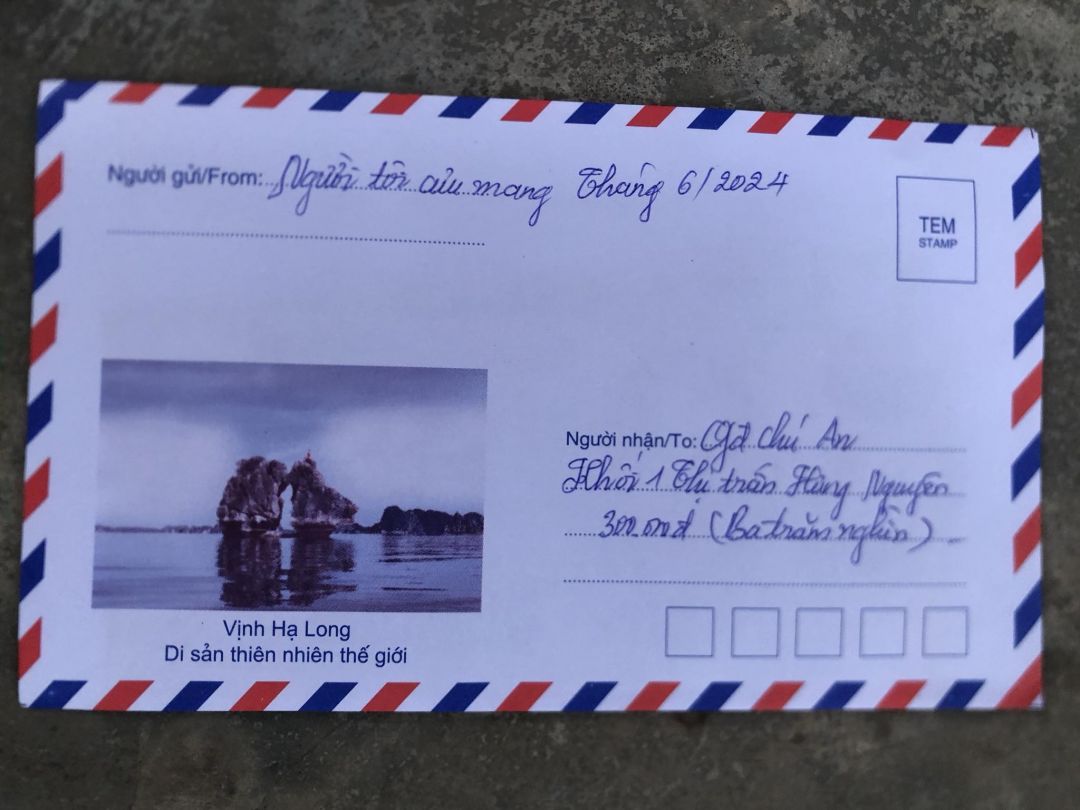 Người gửi/From: Người tôi cưu mang Tháng 6/2024
TEM
STAMP
Người nhận/To: Gđ chú An
Khối 1 Thị trấn Hưng Nguyên
300.000đ (Ba trăm nghìn)
Vịnh Hạ Long
Di sản thiên nhiên thế giới